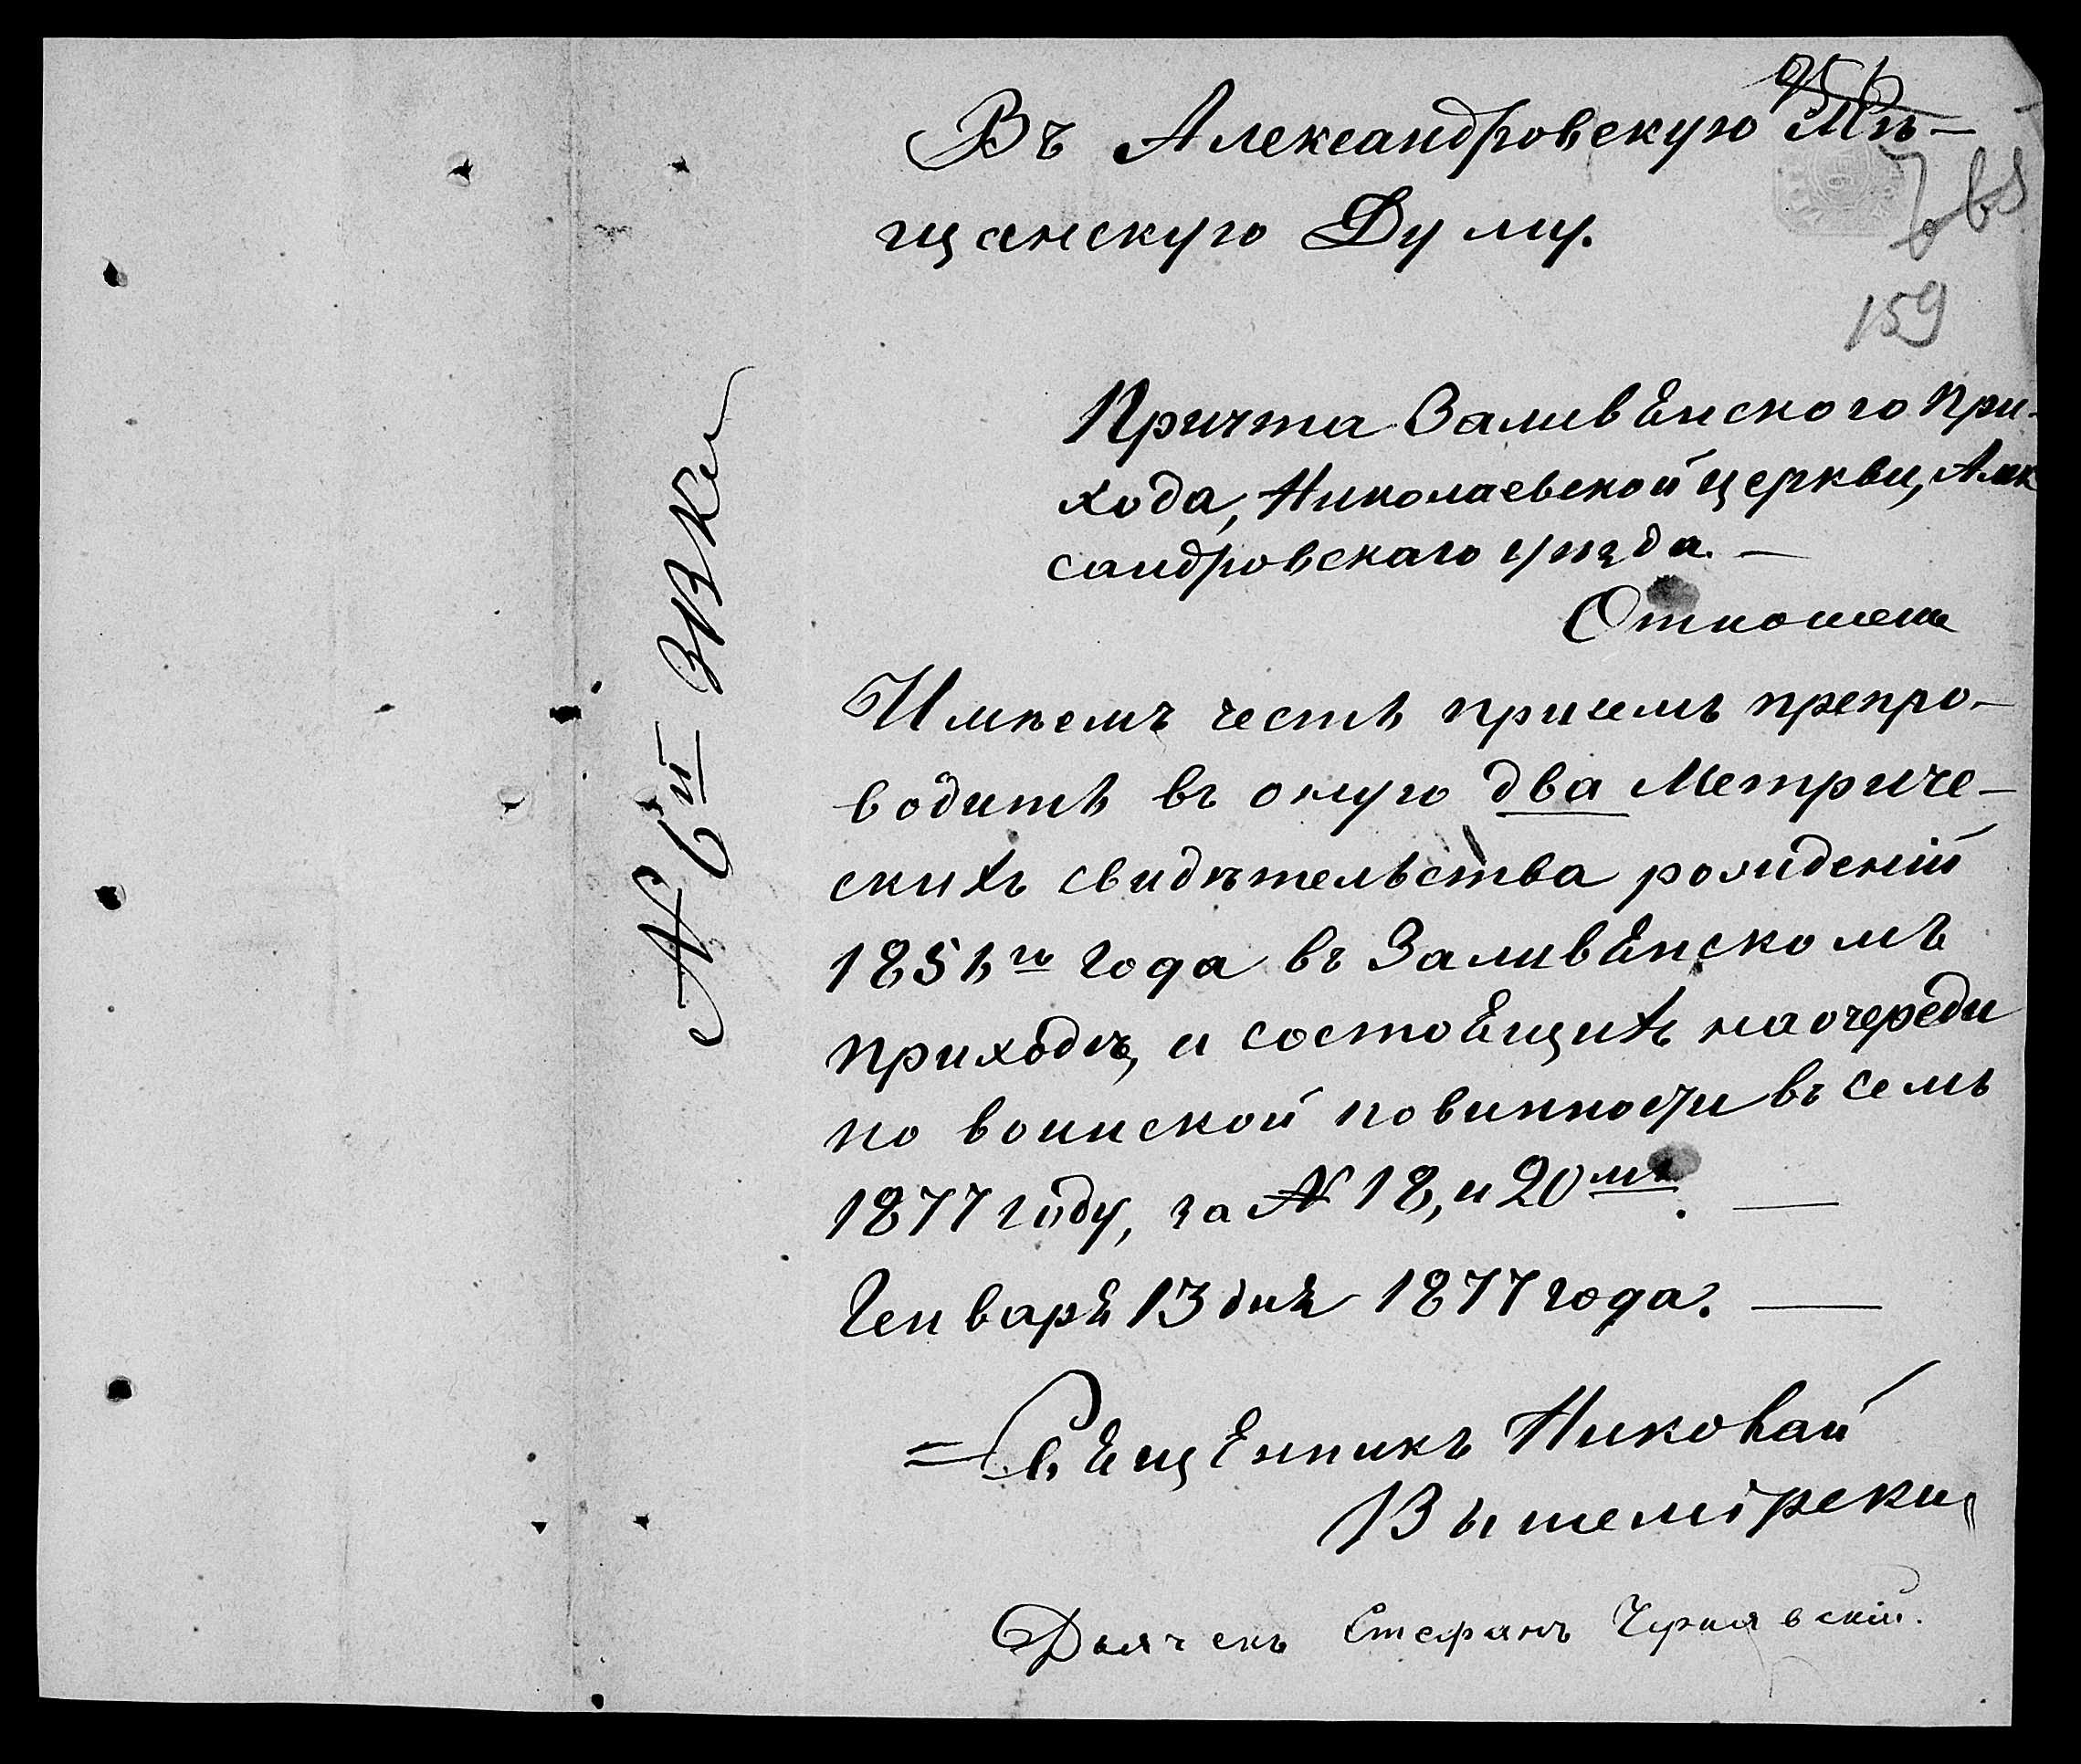 Въ Александровскую Мѣ-
щанскую Думу.
159
Причта Заливянского При-
хода, Николаевской церкви, Алек
сандровскаго уѣзда. —
Отношен
Имѣемъ честь присемъ препро-
водить въ оную два Метриче-
скихъ свидѣтельства рожденій
1851го года въ Заливянскомъ
приходѣ, и состоящихъ на очереди
по воинской повинности въ семъ
1877 году, за № 18, и 20мъ. —
Генваря 13 дня 1877 года. —
Священникъ Николай
Дьячекъ Стефанъ Чернявскій.
№ 6й